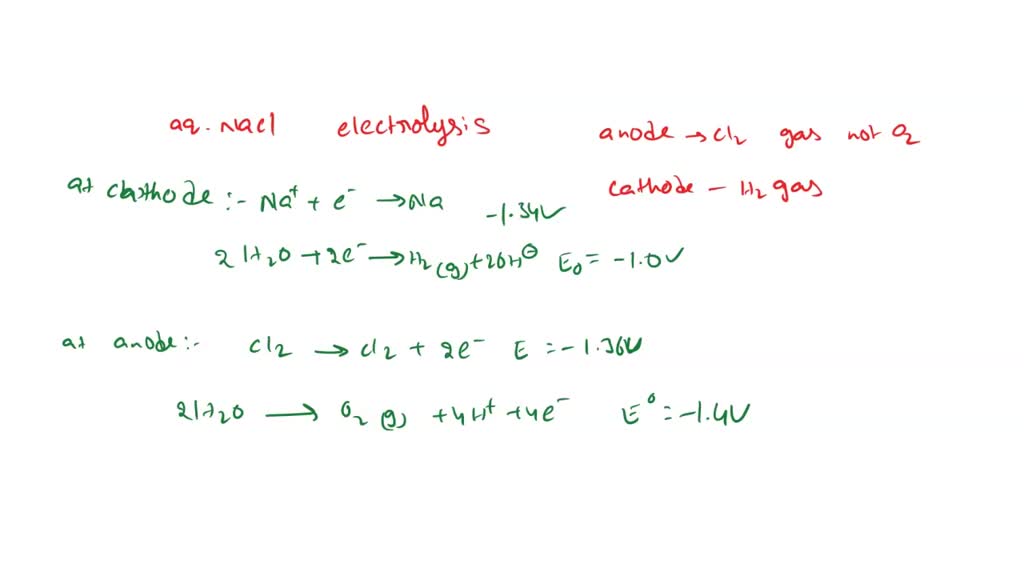 aq. NaCl electrolysis
anode → Cl2 gas not O2
cathode – H2 gas
at cathode :- Na⁺ + e⁻ → Na -1.34V
2H2O + 2e⁻ → H2(g) + 2OH⊖ E0 = -1.0V
at anode :- Cl2 → Cl2 + 2e⁻ E = -1.36V
2H2O → O2(g) + 4H⁺ + 4e⁻ E⁰ = -1.4V